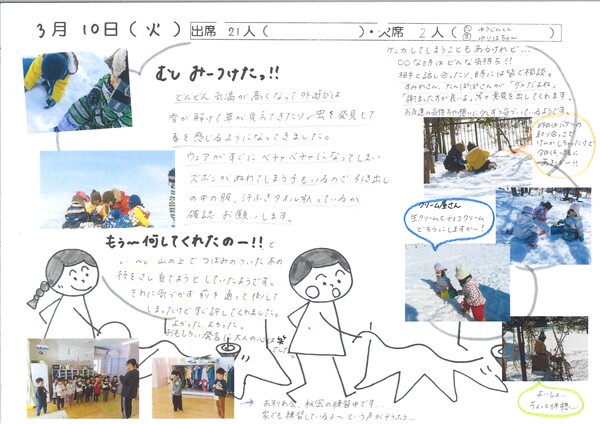 3月 10日(火)
出席 21人( )・欠席 2人( )
むし みーつけたっ!!
どんどん気温が高くなって外遊びは
雪が解けて草が見えてきたり虫を発見して
春を感じるようになってきました。
ウェアがすぐにベチャベチャになってしまい
ズボンがぬれてしまう子もいるので引き出し
の中の服、汗ふきタオル 入っているか
確認お願いします。
もぅ〜何してくれたのー!!と
い〜。山の上でつぼみのついた木の
枝をさし育てようとしていたようです。
それに気づかず前を通って倒して
しまったけどすぐ許してくれました。
よかった、よかった。
おもしろい発言に大人の心は笑
でした
ケンカしてしまうこともあるけれど…
○○な時はどんな気持ち??
相手と話し合ったり、時には皆で相談。
すみれさん、たんぽぽさんが「ダメだよね」
「謝った方が良いよ」等々意見を出してくれます。
お友達の気持ちや想いに少しずつ気づいているようです。
昨日は
けんかしちゃったけど
今日は一緒に
クリーム屋さん
生クリームとチョコクリーム
どちらにしますかー?
よいしょ…
ちょっと休憩…
→ お別れ会、秘密の練習中です…
家でも練習しているよ〜という声がチラホラ…